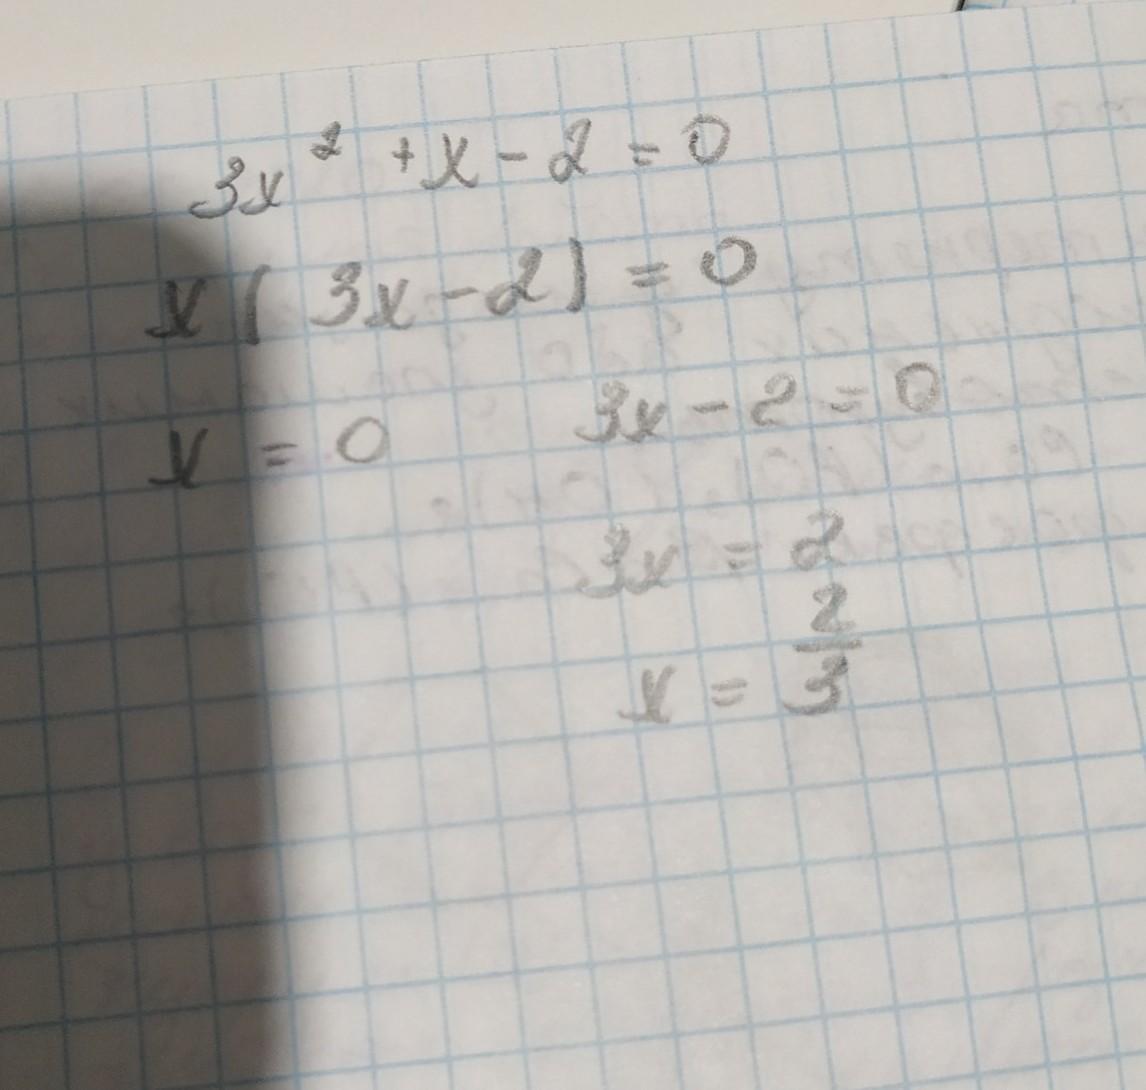 3x² + x - 2 = 0
x ( 3x - 2 ) = 0
x = 0    3x - 2 = 0
3x = 2
x = 2/3